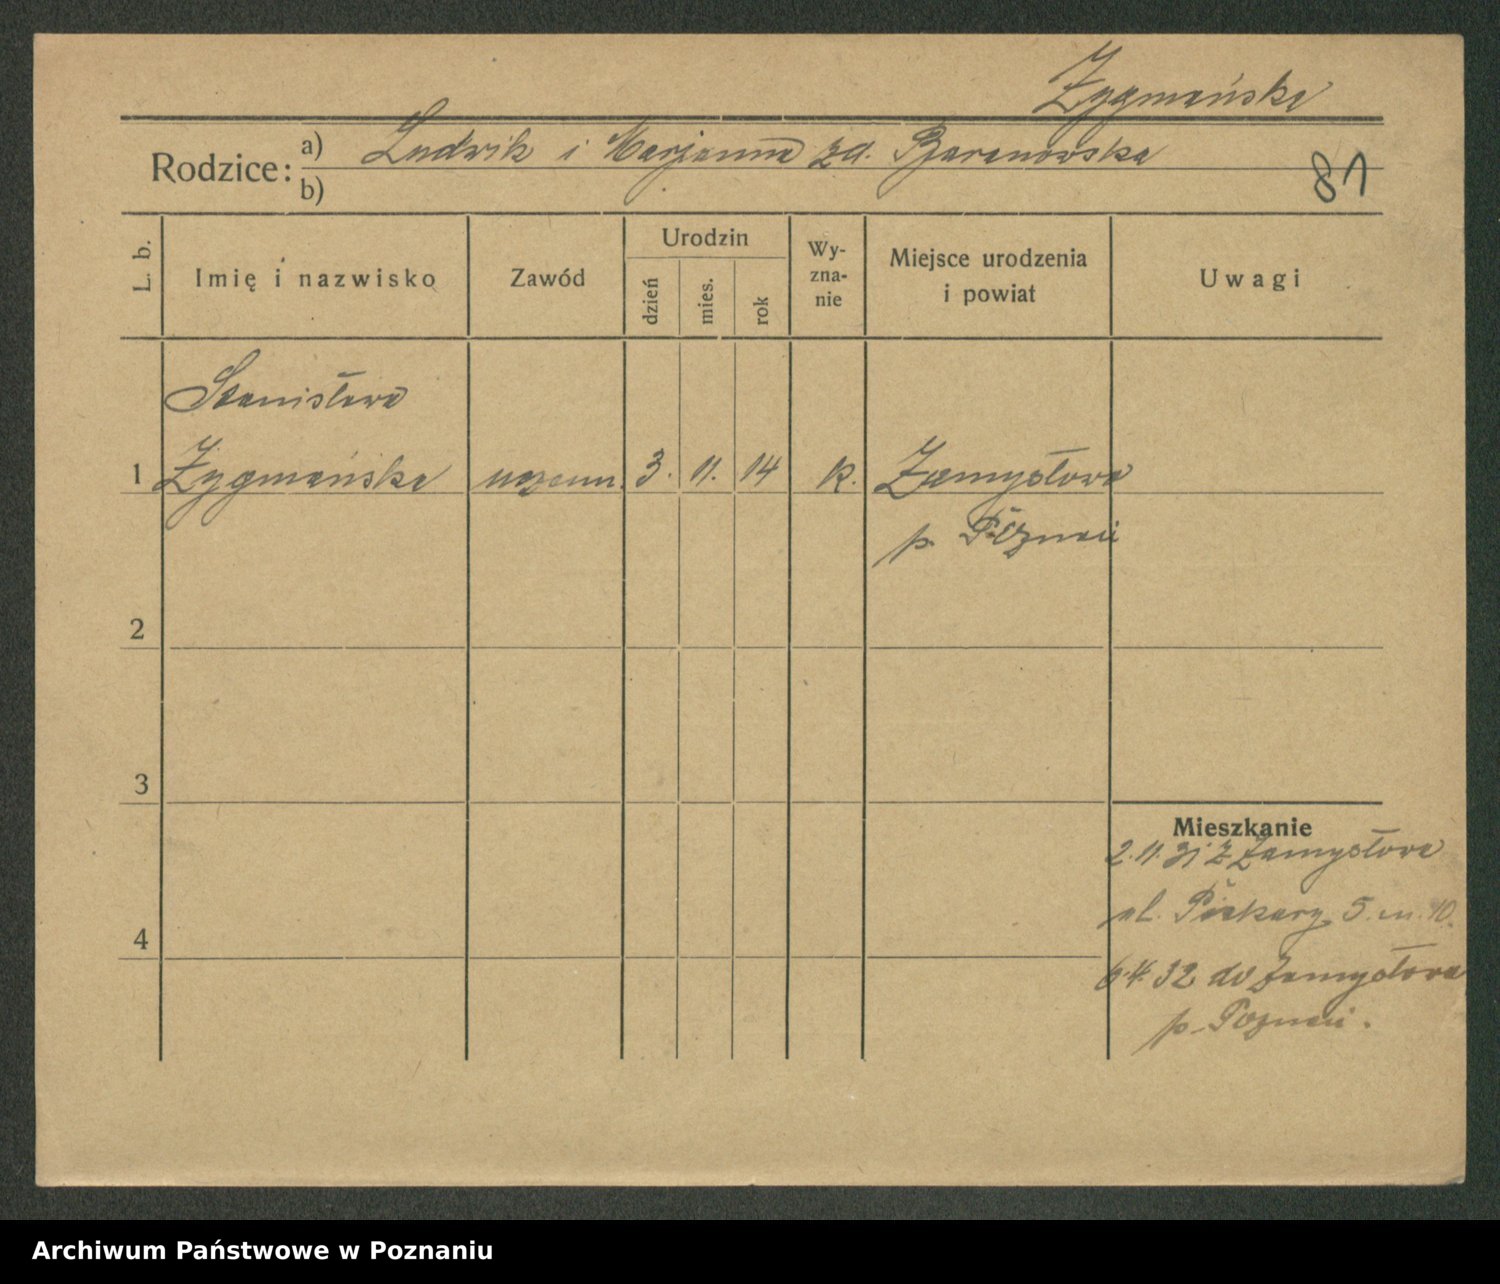 Zygmańska
Rodzice: a) Ludwik i Marjanna zd. Baranowska
b)
81
L. b.
Imię i nazwisko
Zawód
Urodzin
dzień
mies.
rok
Wy-
zna-
nie
Miejsce urodzenia
i powiat
Uwagi
Stanisława
1 Zygmańska uczenn. 3. 11. 14 k. Zamysłowo
p. Poznań
2
3
4
Mieszkanie
2.11.31 z Zamysłowa
ul. Piekary 5. m. 10.
6.4.32 do Zamysłowa
p. Poznań.
Archiwum Państwowe w Poznaniu